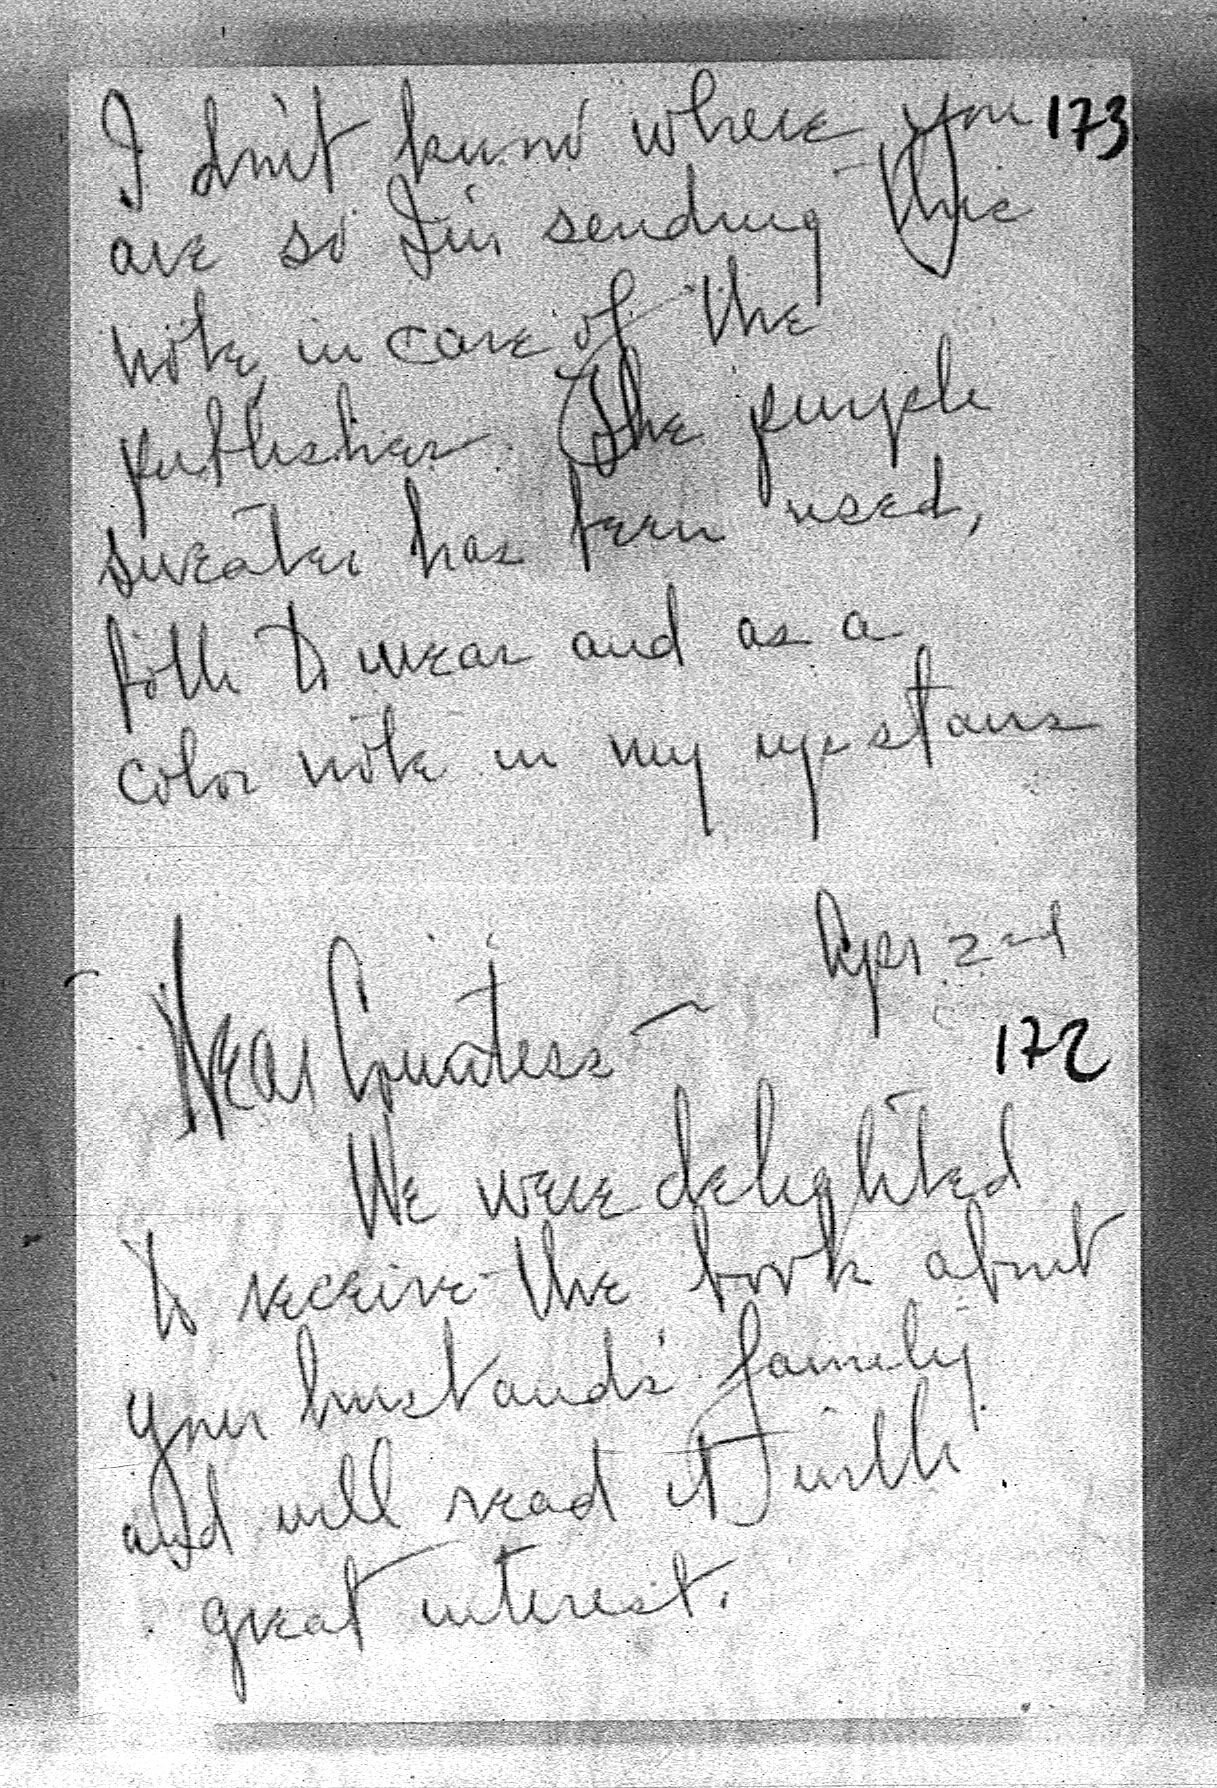 I don't know where you 173
are so I'm sending this
note in care of the
publisher. The purple
sweater has been used,
both to wear and as a
color note in my upstairs
Apr 24
Dear Countess —
172
We were delighted
to receive the book about
your husband's family
and will read it with
great interest.